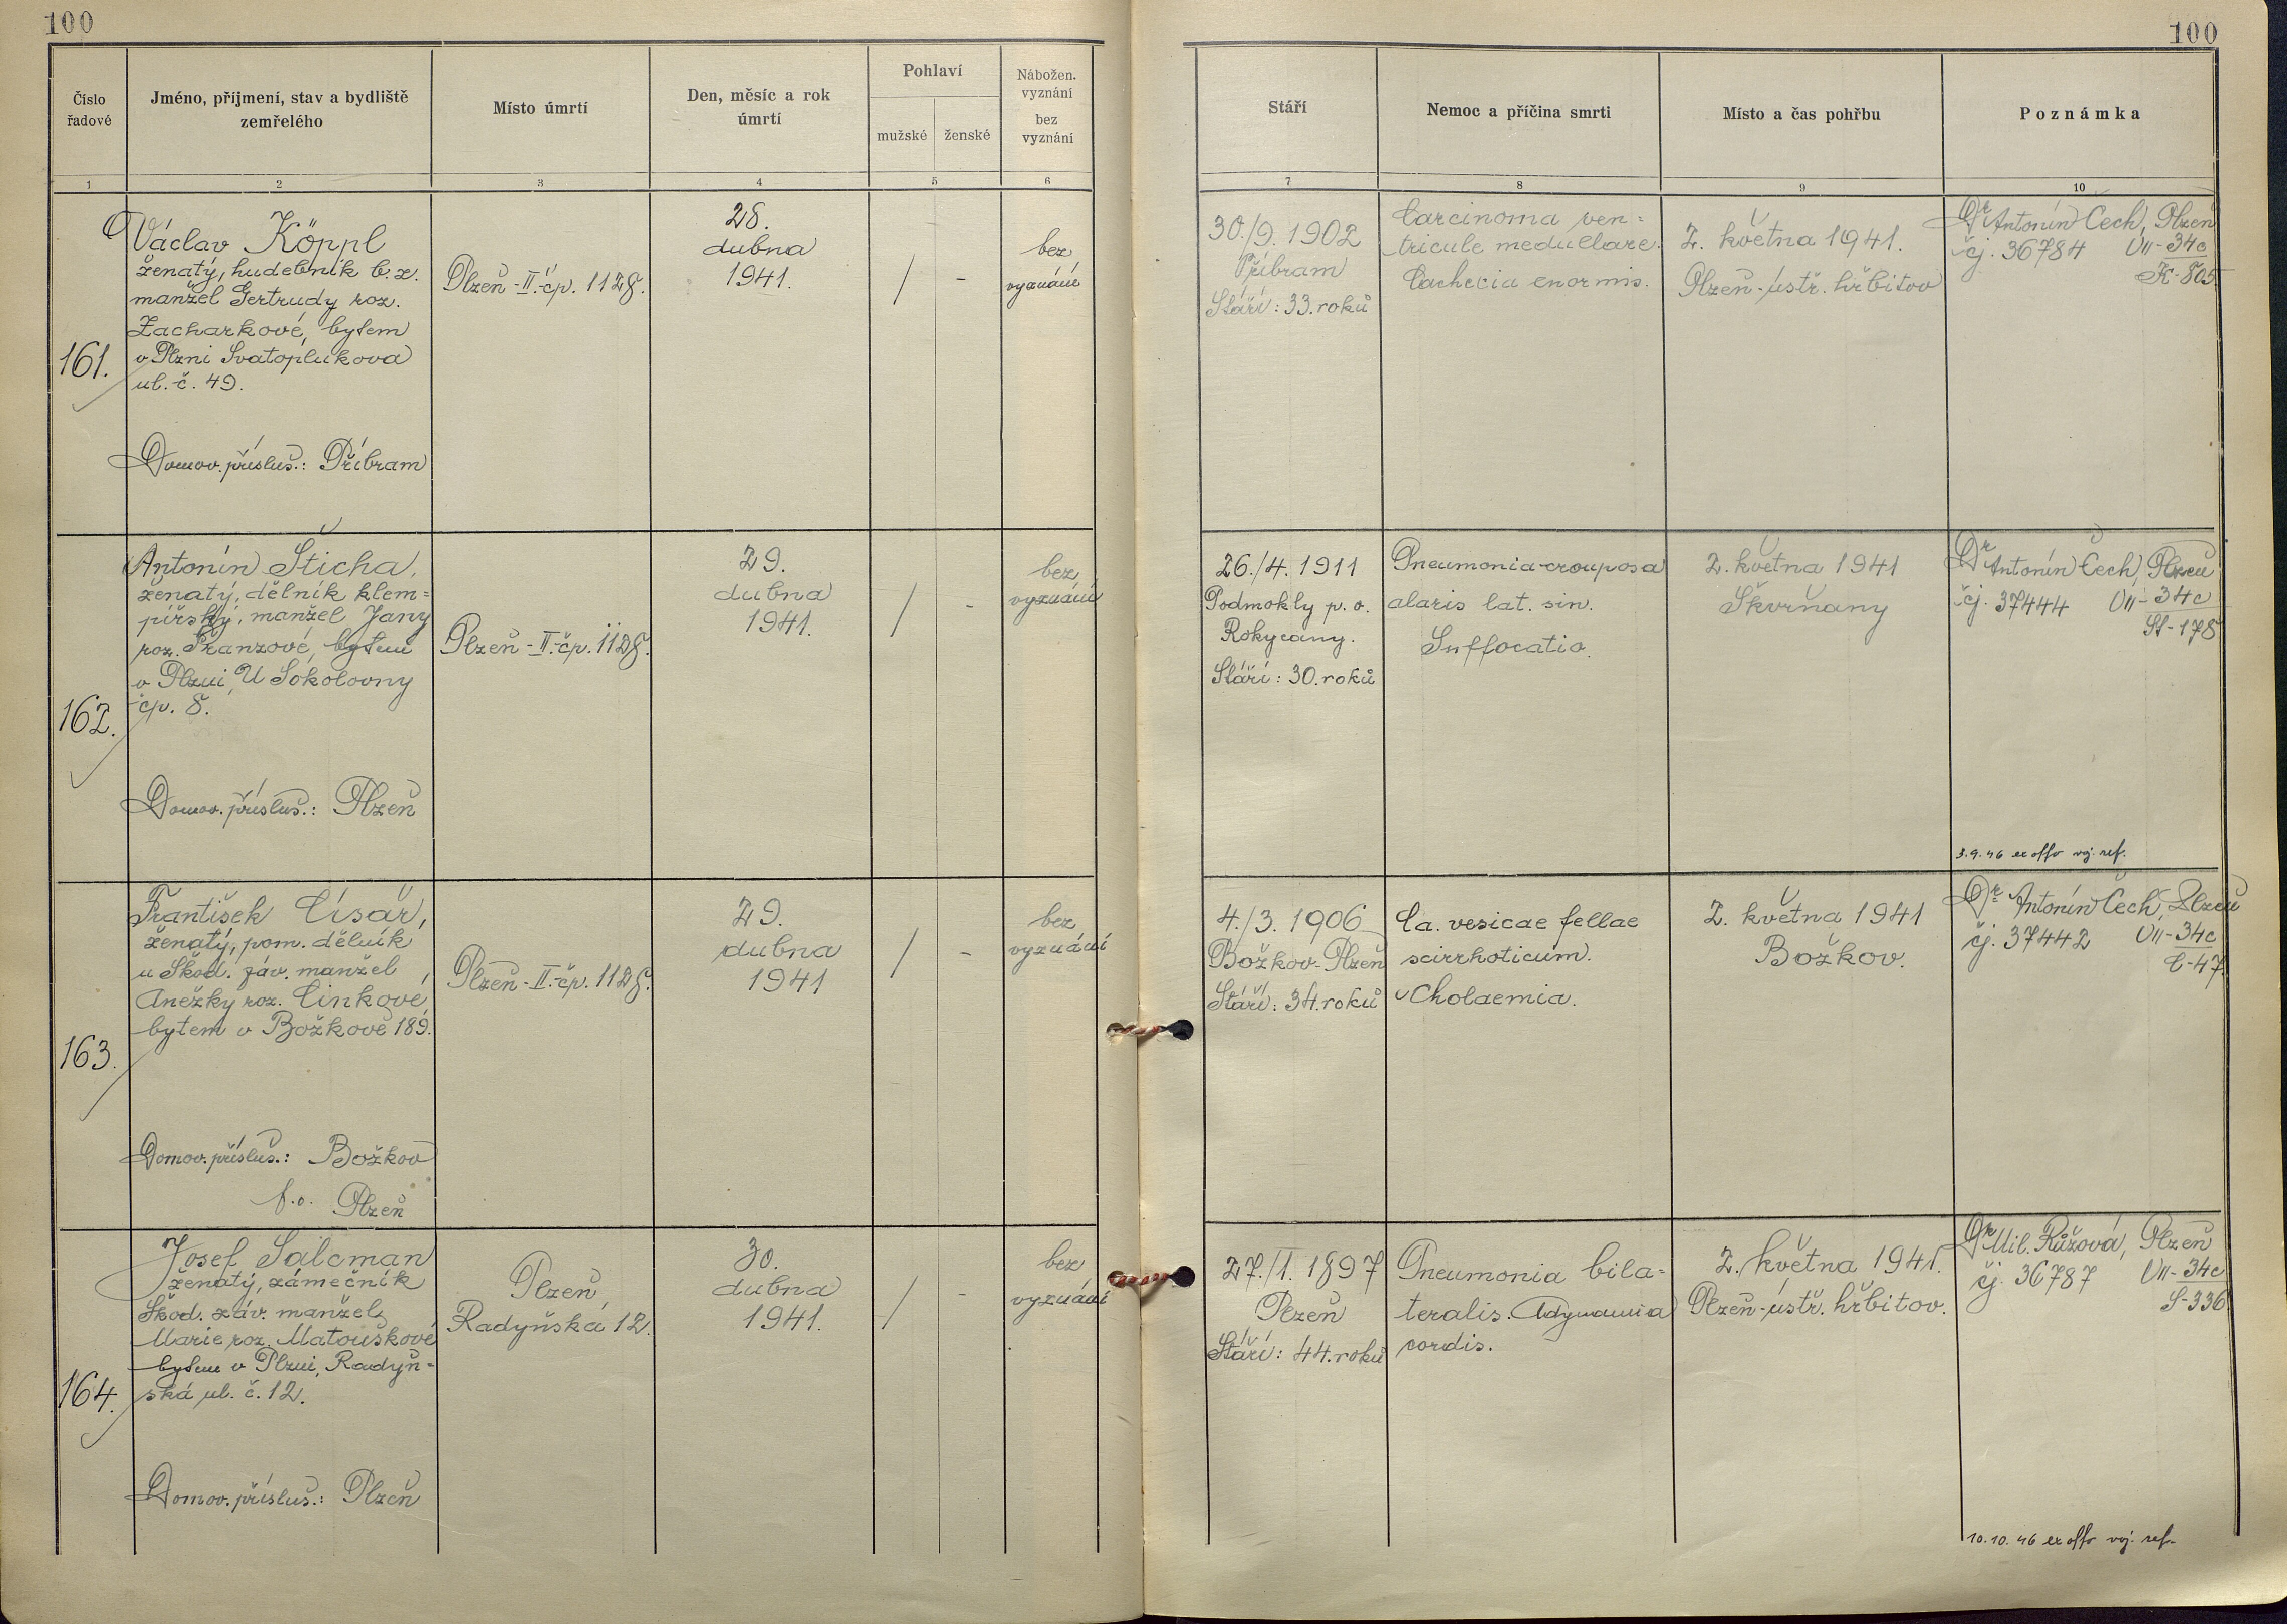 100
100
Číslo
řadové
Jméno, příjmení, stav a bydliště
zemřelého
Místo úmrtí
Den, měsíc a rok
úmrtí
Pohlaví
mužské
ženské
Nábožen.
vyznání
bez
vyznání
Stáří
Nemoc a příčina smrti
Místo a čas pohřbu
Poznámka
1
2
3
4
5
6
7
8
9
10
161.
Václav Köppl
ženatý, hudebník b. z.
manžel Gertrudy roz.
Zacharkové, bytem
v Plzni Svatoplukova
ul. č. 49.
Domov. přísluš.: Příbram
Plzeň-II.-čp. 1128.
28.
dubna
1941.
/
-
bez
vyznání
30./9. 1902
Příbram
Stáří: 33. roků
Carcinoma ven=
tricule medullare.
Cachecia enormis.
2. května 1941.
Plzeň-ústř. hřbitov
Dr Antonín Čech, Plzeň
čj. 36784 VII-34c
K-805
162.
Antonín Šticha,
ženatý, dělník klem=
pířský, manžel Jany
roz. Franzové, bytem
v Plzni, U Sokolovny
čp. 8.
Domov. přísluš.: Plzeň
Plzeň-II.-čp. 1128.
29.
dubna
1941.
/
-
bez
vyznání
26./4. 1911
Podmokly p. o.
Rokycany.
Stáří: 30. roků
Pneumonia crouposa
alaris lat. sin.
Suffocatio.
2. května 1941
Škvrňany
Dr Antonín Čech, Plzeň
čj. 37444 VII-34c
St-178
3.9.46 ex offo voj. ref.
163.
František Císař,
ženatý, pom. dělník
u Škod. záv. manžel
Anežky roz. Cinkové,
bytem v Božkově 189.
Domov. přísluš.: Božkov
p.o. Plzeň
Plzeň-II.-čp. 1128.
29.
dubna
1941
/
-
bez
vyznání
4./3. 1906
Božkov-Plzeň
Stáří: 34. roků
Ca. vesicae fellae
scirrhoticum.
Cholaemia.
2. května 1941
Božkov.
Dr Antonín Čech, Plzeň
čj. 37442 VII-34c
C-47
164.
Josef Salcman
ženatý, zámečník
Škod. záv. manžel
Marie roz. Matouškové
bytem v Plzni, Radyň-
ská ul. č. 12.
Domov. přísluš.: Plzeň
Plzeň,
Radyňská 12.
30.
dubna
1941.
/
-
bez
vyznání
27./1. 1897
Plzeň
Stáří: 44. roků
Pneumonia bila=
teralis. Adynamia
cordis.
2. května 1941.
Plzeň-ústř. hřbitov.
Dr Mil. Růžová, Plzeň
čj. 36787 VII-34c
S-336
10.10.46 ex offo voj. ref.